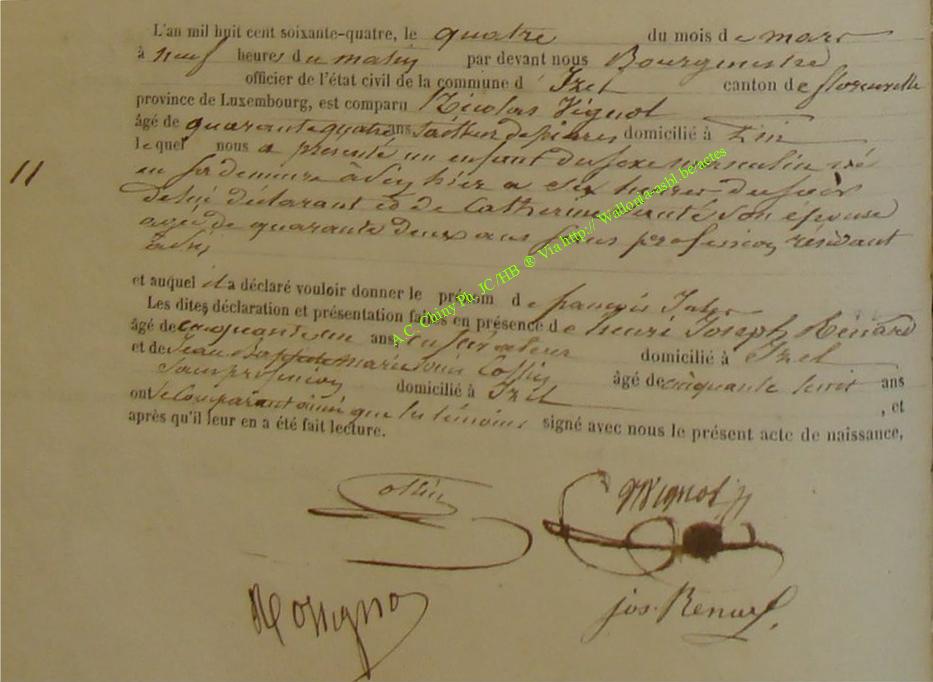 L'an mil huit cent soixante-quatre, le quatre du mois de mars
à neuf heures du matin par devant nous Bourgmestre
officier de l'état civil de la commune d' Izel canton de florenville
province de Luxembourg, est comparu Nicolas Vignol
âgé de quarante quatre ans domicilié à
lequel nous a présenté un enfant du sexe masculin né
11
en sa demeure à hier a six heures du soir
de lui déclarant et de Catherine son épouse
agée de quarante deux ans sans profession, résidant
et auquel il a déclaré vouloir donner le prénom de françois
Les dites déclaration et présentation faites en présence de henri Joseph Renard
âgé de cinquante un ans domicilié à Izel
et de Jean Baptiste marie Collin âgé de cinquante huit ans
sans profession domicilié à Izel , et
ont le Comparant ainsi que les témoins signé avec nous le présent acte de naissance,
après qu'il leur en a été fait lecture.
A.C. Chiny Ph. JC/HB ® Via http:// Wallonia-asbl.be/actes
Collin
NVignol
Rossignon
jos. Renard